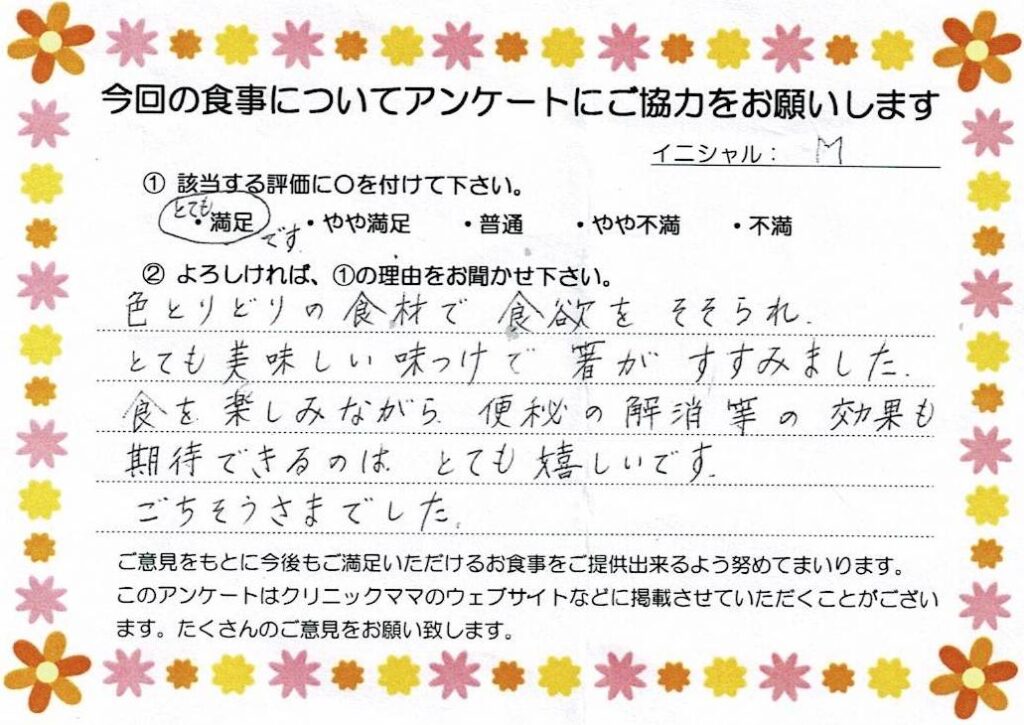 今回の食事についてアンケートにご協力をお願いします
イニシャル： M
① 該当する評価に〇を付けて下さい。
とても
・満足 です ・やや満足 ・普通 ・やや不満 ・不満
② よろしければ、①の理由をお聞かせ下さい。
色とりどりの食材で 食欲を そそられ、
とても 美味しい 味つけで 箸が すすみました。
食を 楽しみながら 便秘の 解消等の 効果も
期待できるのは とても 嬉しいです。
ごちそうさまでした。
ご意見をもとに今後もご満足いただけるお食事をご提供出来るよう努めてまいります。
このアンケートはクリニックママのウェブサイトなどに掲載させていただくことがござい
ます。たくさんのご意見をお願い致します。